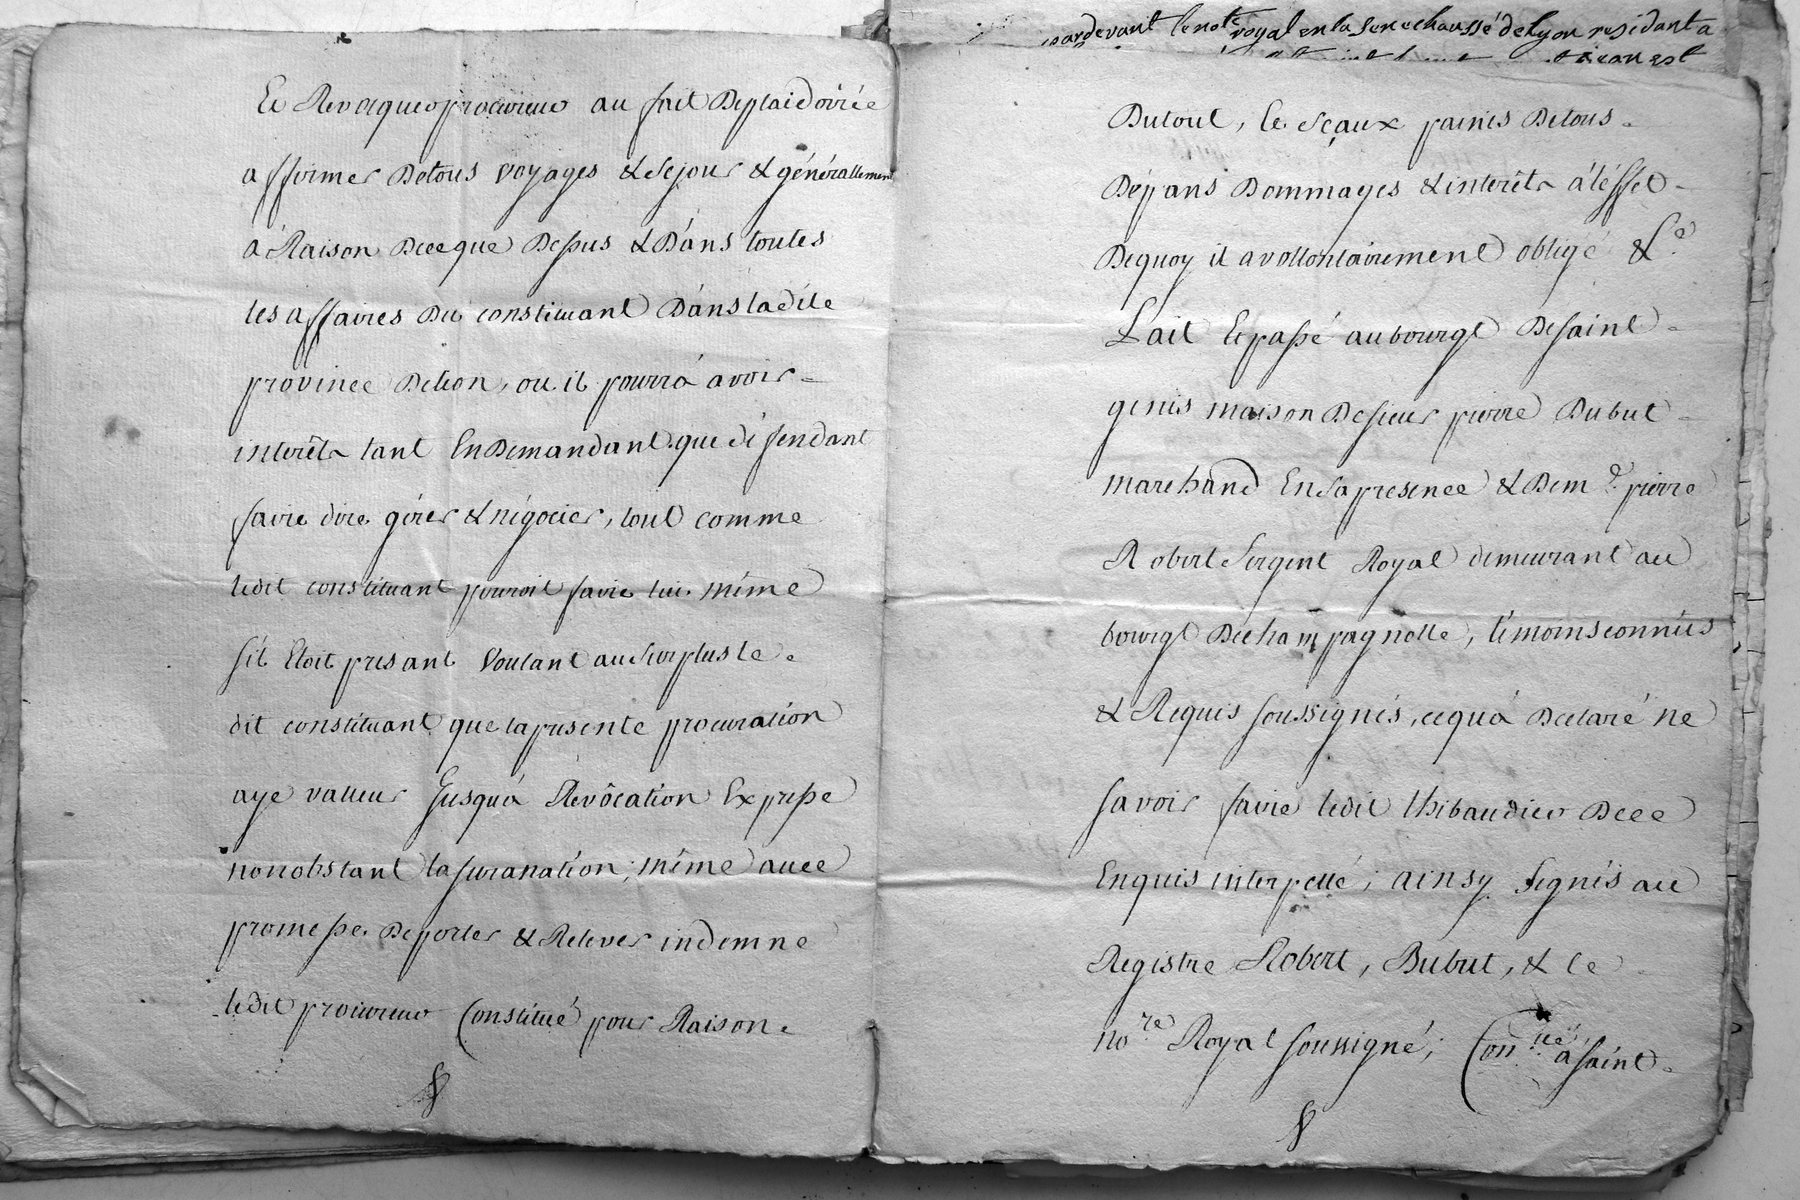 Et Revoquer procureur au fait Deplaidoirie
affirmer Detous voyages & Sejour & générallement
a Raison Deceque Dessus & Dans toutes
les affaires Du constituant Dans ladite
province Delion, ou il pourra avoir
interêts tant En Demandant que deffendant
faire dire gérer & négocier, tout comme
ledit constituant pouroit faire lui même
sil Etoit présant Voulant au Surplus le
dit constituant que la présente procuration
aye valleur Jusqua Révôcation Expresse
nonobstant la suranation, même avec
promesse De porter & Relever indemne
ledit procureur Constitué pour Raison
pardevant le note royal en la Senechaussé de lyon residant a
Dutout, le Sçaux peines Detous
Dépans Dommages & interêts a léffet
Dequoy il a vollontairement obligé &a
Fait Et passé au bourgt De saint
genis maison De sieur pierre Dubut
marchand En Sa presence & De me pierre
Robert Sergent Royal demeurant au
bourgt De champagnolle, témoins connûs
& Requis soussignés, ce qua Declaré ne
savoir faire ledit thibaudier De ce
Enquis interpellé; ainsy Signés au
Registre Robert, Dubut, & le
nore Royal soussigné; Conllé a saint